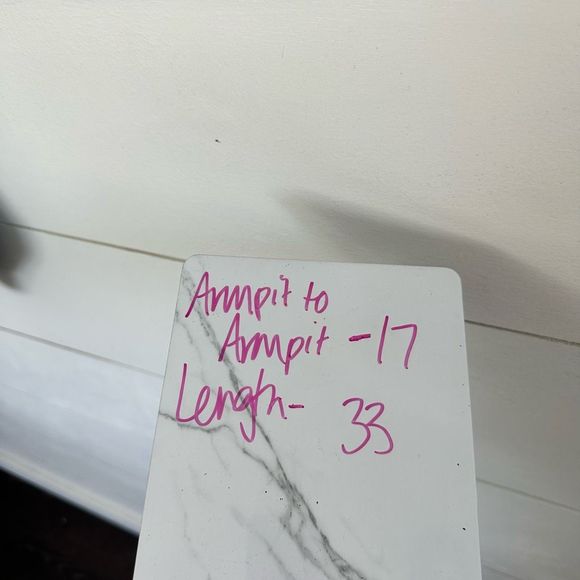 Armpit to
Armpit - 17
Length - 33